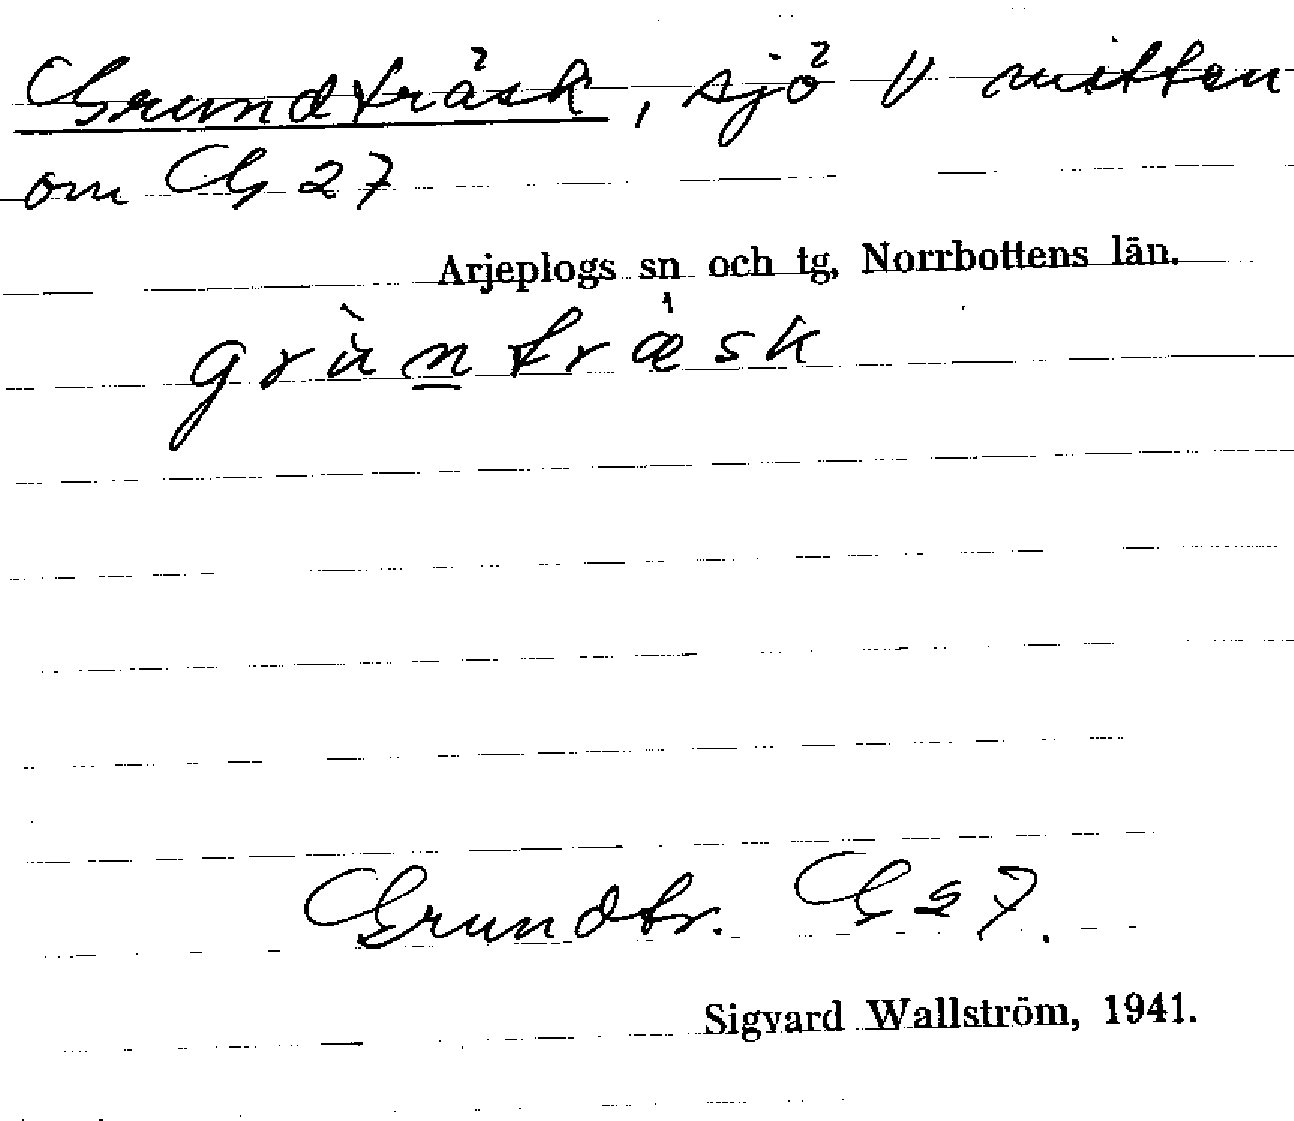 Grundträsk, sjö V mitten
om G 27
Arjeplogs sn och tg, Norrbottens län.
grùn̲træ̍sk
Grundtr. G 27.
Sigvard Wallström, 1941.